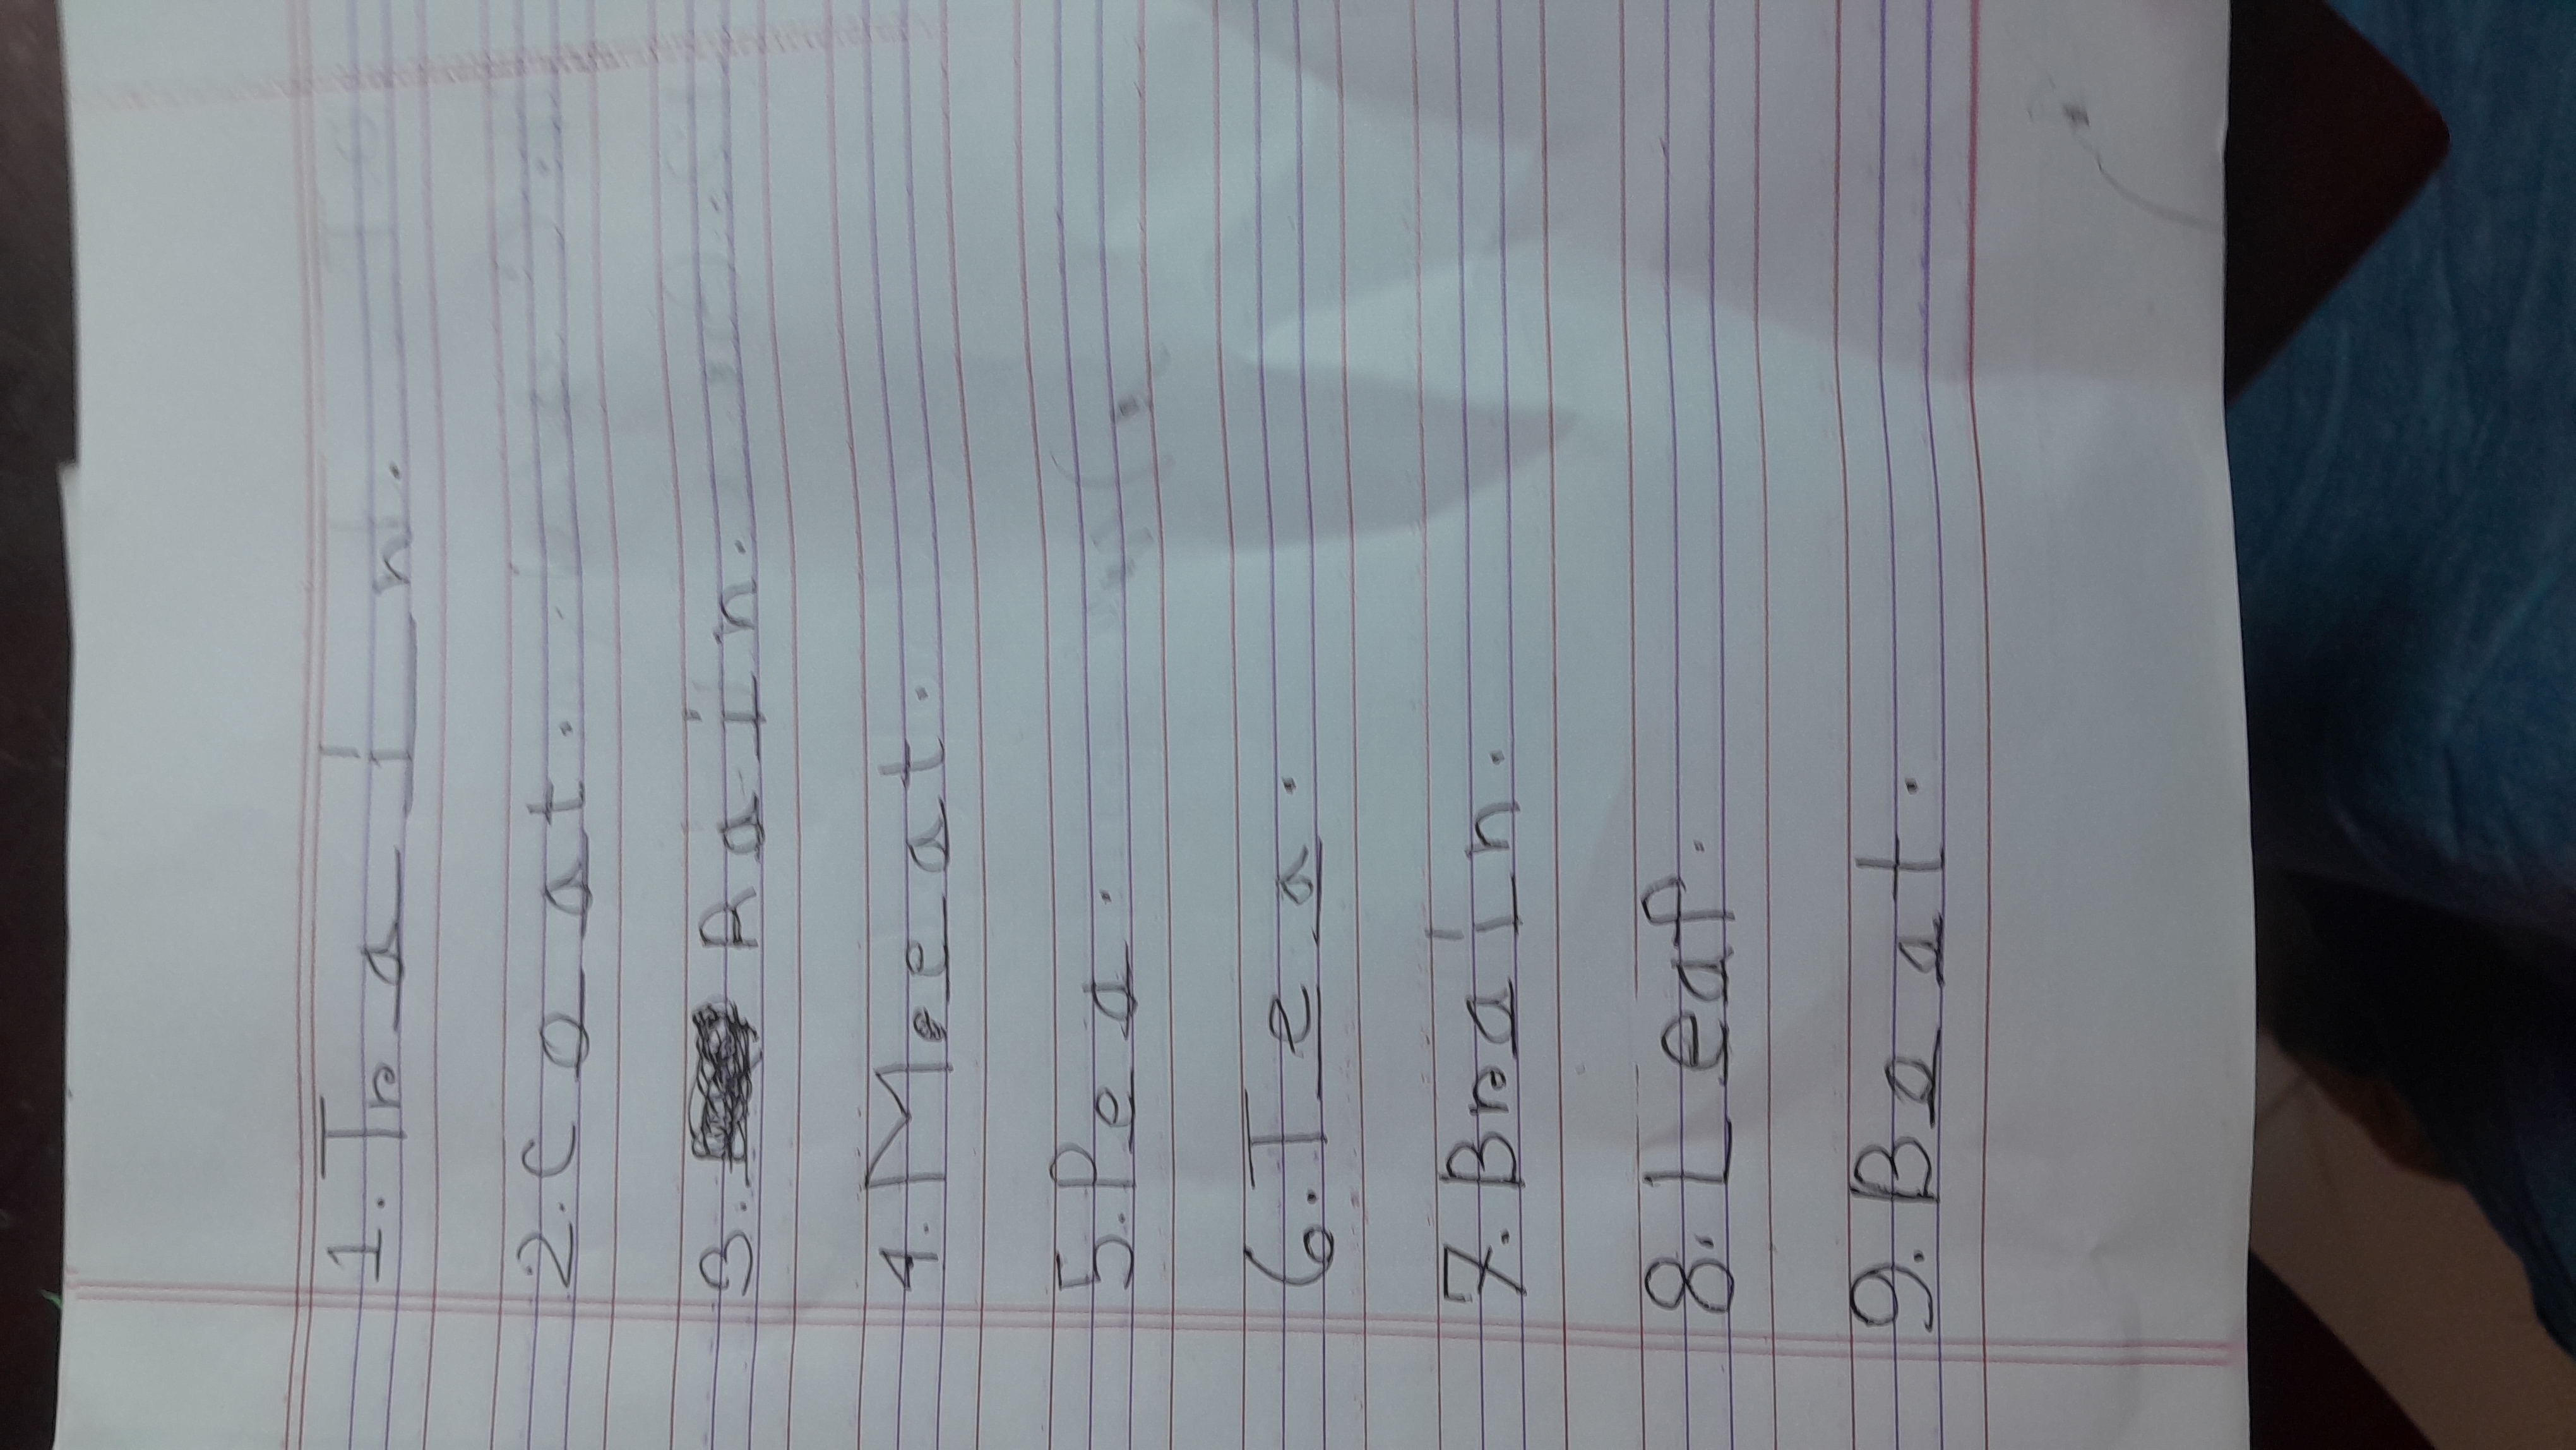 1. Train.
2. Coat.
3. Rain.
4. Meeat.
5. Pea.
6. Tea.
7. Brain.
8. Leaf.
9. Boat.